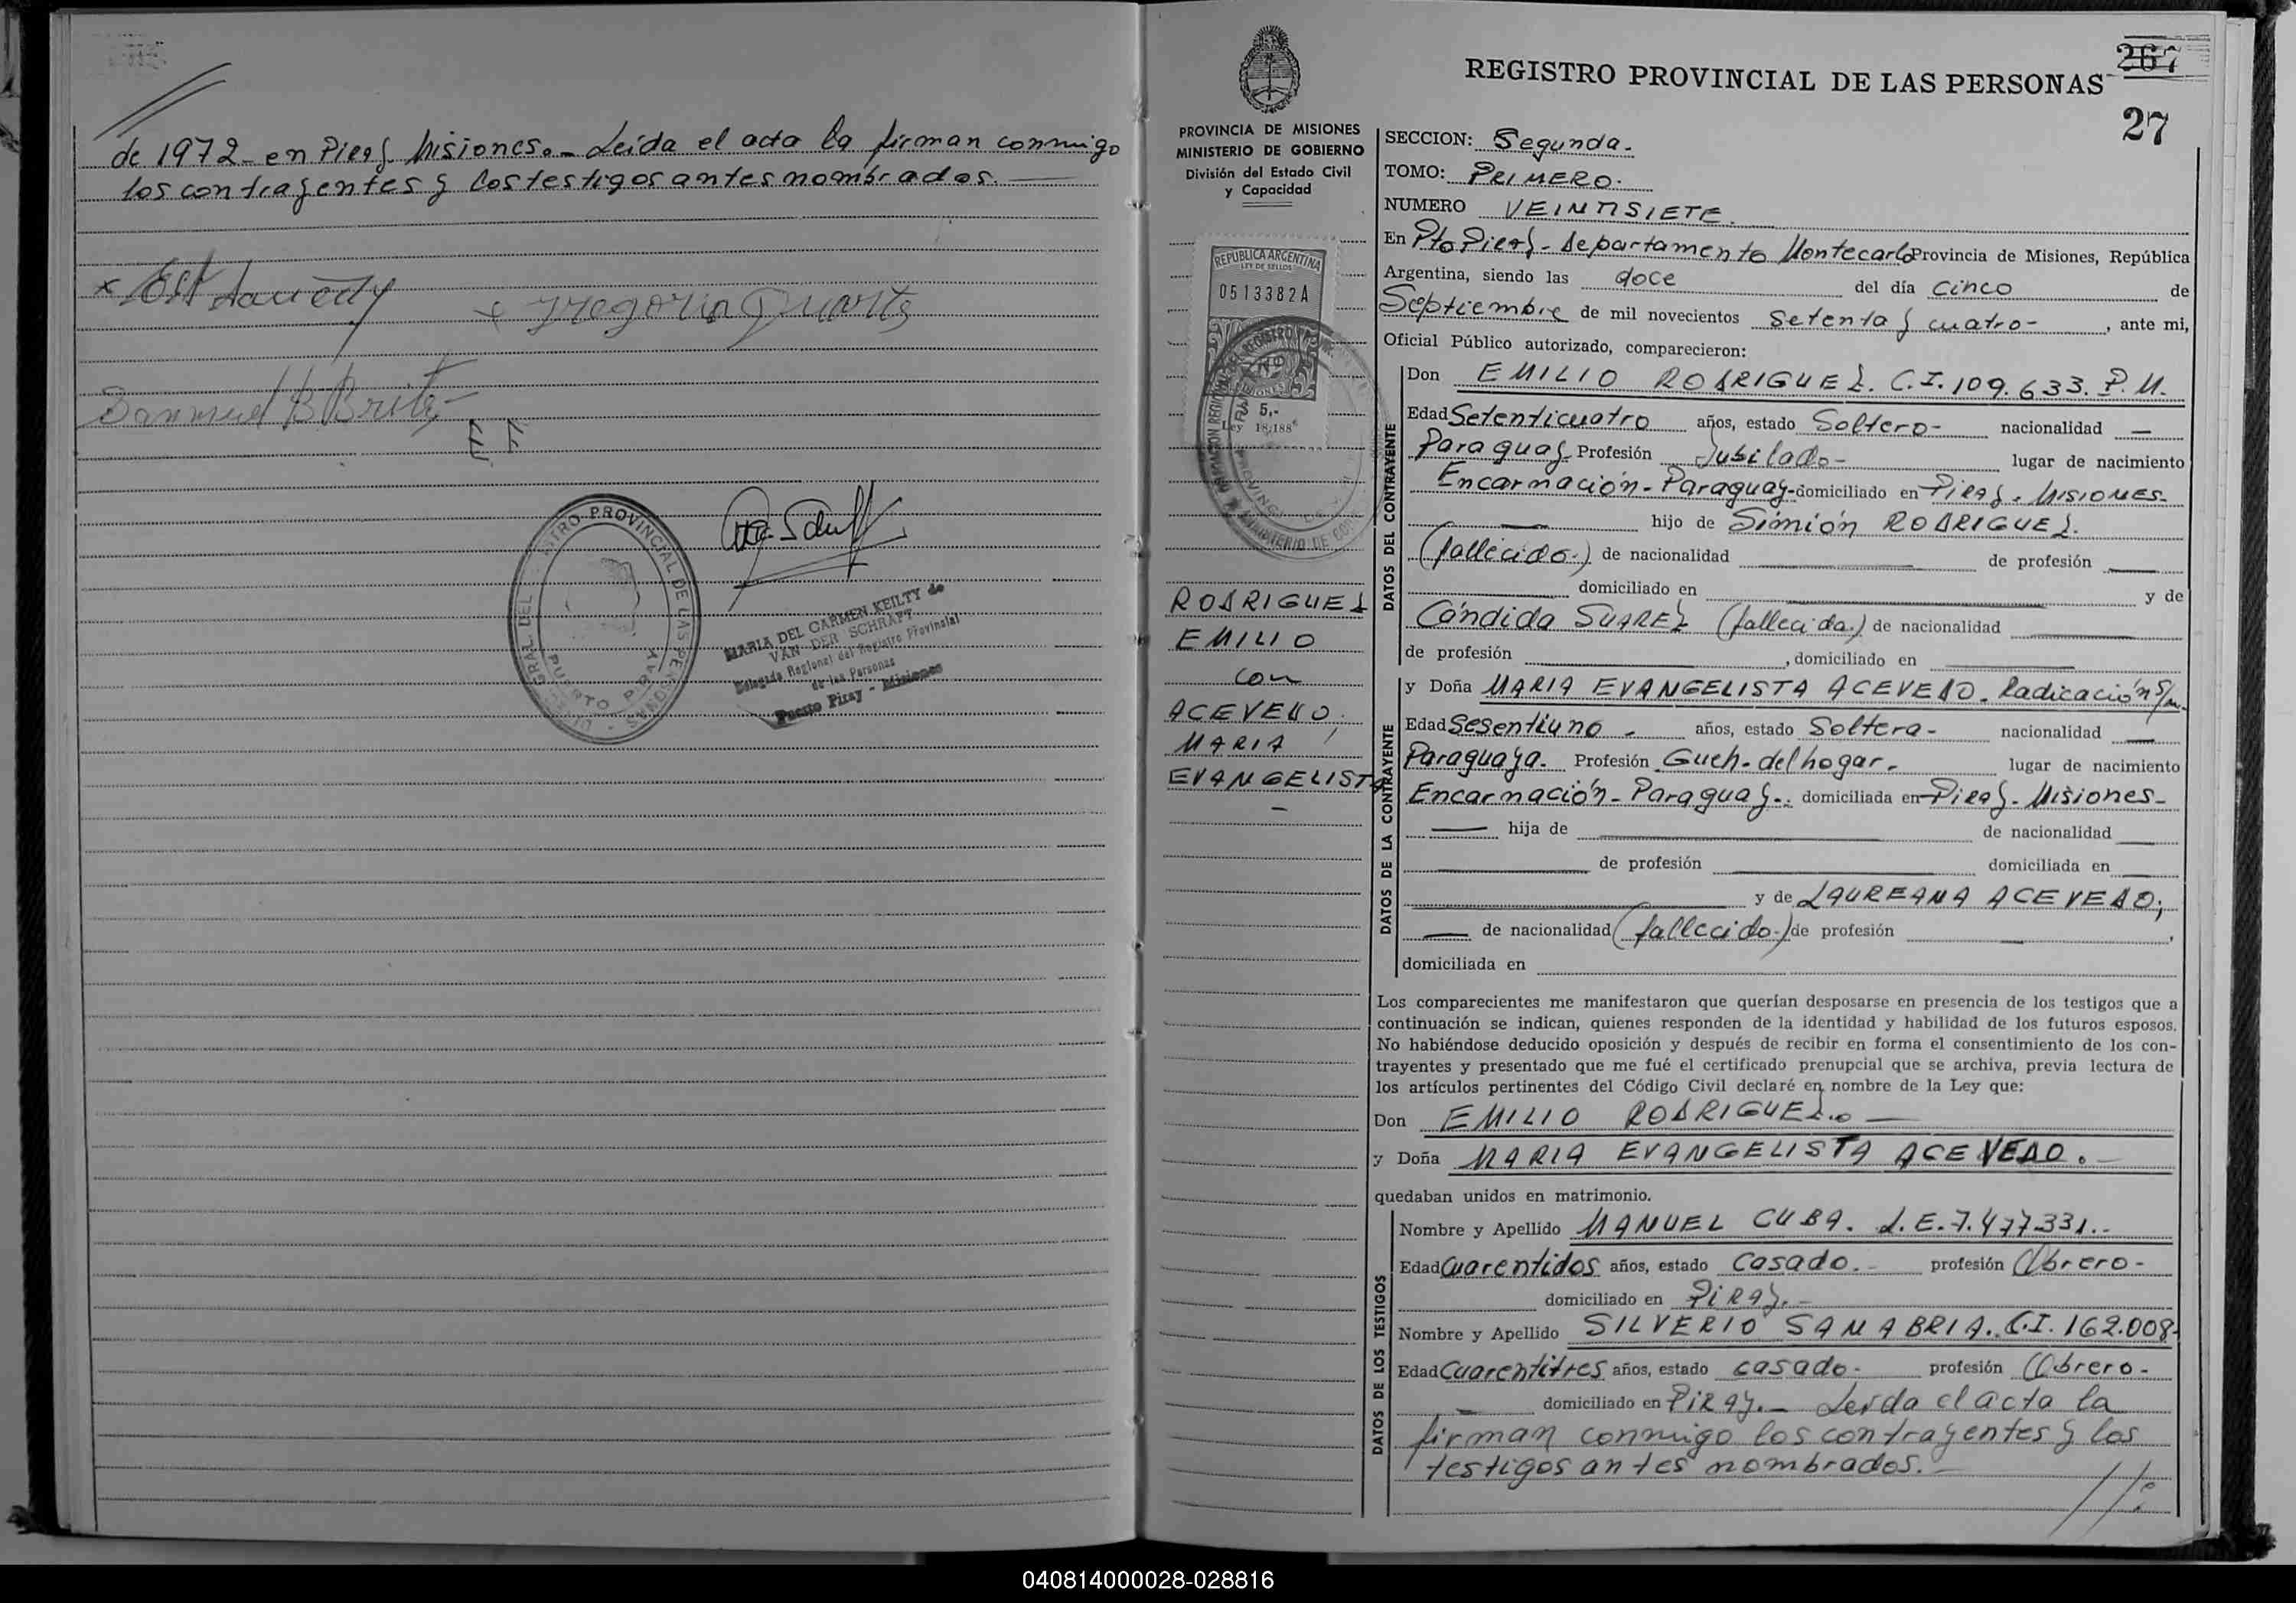 de 1972 en Piray Misiones.- Leída el acta la firman conmigo
los contrayentes y los testigos antes nombrados.
GRAL. DEL REGISTRO PROVINCIAL DE LAS PERSONAS
PUERTO PIRAY
MARIA DEL CARMEN KEILTY de
VAN DER SCHRAFT
Delegada Regional del Registro Provincial
de las Personas
Puerto Piray - Misiones
267
REGISTRO PROVINCIAL DE LAS PERSONAS
27
PROVINCIA DE MISIONES
MINISTERIO DE GOBIERNO
División del Estado Civil
y Capacidad
REPUBLICA ARGENTINA
LEY DE SELLOS
0513382A
5,-
Ley 18.188
RODRIGUEZ
EMILIO
con
ACEVEDO,
MARIA
EVANGELISTA
-
SECCION: Segunda.
TOMO: PRIMERO.
NUMERO VEINTISIETE.
En Pto Piray - Departamento Montecarlo Provincia de Misiones, República
Argentina, siendo las doce del día cinco de
Septiembre de mil novecientos setenta y cuatro-, ante mi,
Oficial Público autorizado, comparecieron:
DATOS DEL CONTRAYENTE
Don EMILIO RODRIGUEZ. C.I. 109.633. P.M.
Edad Setenticuatro años, estado Soltero- nacionalidad —
Paraguay Profesión Jubilado- lugar de nacimiento
Encarnación - Paraguay- domiciliado en PIRAY. MISIONES-
— hijo de Simión RODRIGUEZ.
(fallecido.) de nacionalidad — de profesión —
domiciliado en — y de
Cándida SUAREZ (fallecida.) de nacionalidad —
de profesión —, domiciliado en —
DATOS DE LA CONTRAYENTE
y Doña MARIA EVANGELISTA ACEVEDO. Radicación S/n.
Edad Sesentiuno - años, estado Soltera- nacionalidad —
Paraguaya. Profesión Queh. del hogar. lugar de nacimiento
Encarnación - Paraguay-. domiciliada en Piray. Misiones-
— hija de — de nacionalidad —
— de profesión — domiciliada en —
— y de LAUREANA ACEVEDO,
— de nacionalidad (fallecido.) de profesión —,
domiciliada en
Los comparecientes me manifestaron que querían desposarse en presencia de los testigos que a
continuación se indican, quienes responden de la identidad y habilidad de los futuros esposos.
No habiéndose deducido oposición y después de recibir en forma el consentimiento de los con-
trayentes y presentado que me fué el certificado prenupcial que se archiva, previa lectura de
los artículos pertinentes del Código Civil declaré en nombre de la Ley que:
Don EMILIO RODRIGUEZ.-
y Doña MARIA EVANGELISTA ACEVEDO.-
quedaban unidos en matrimonio.
DATOS DE LOS TESTIGOS
Nombre y Apellido MANUEL CUBA. L.E. 7.477.331.-
Edad Cuarentidos años, estado casado.- profesión Obrero-
domiciliado en PIRAY.-
Nombre y Apellido SILVERIO SANABRIA. C.I. 162.008.
Edad Cuarentitres años, estado casado- profesión Obrero-
— domiciliado en PIRAY.- Leída el acta la
firman conmigo los contrayentes y los
testigos antes nombrados.-
//:
040814000028-028816